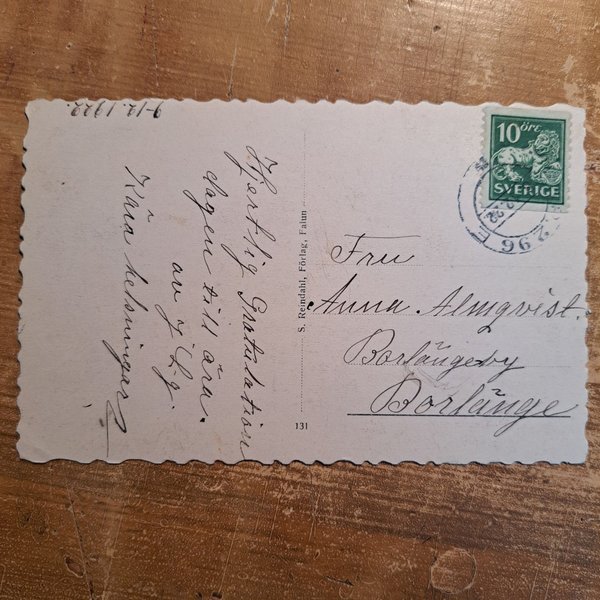 9-12.1922.
Hjertlig Gratulation
dagen till ära.
av
Kära helsningar
S. Reindahl, Förlag, Falun
131
10 öre
SVERIGE
Fru
Anna Almqvist.
Borlängeby
Borlänge